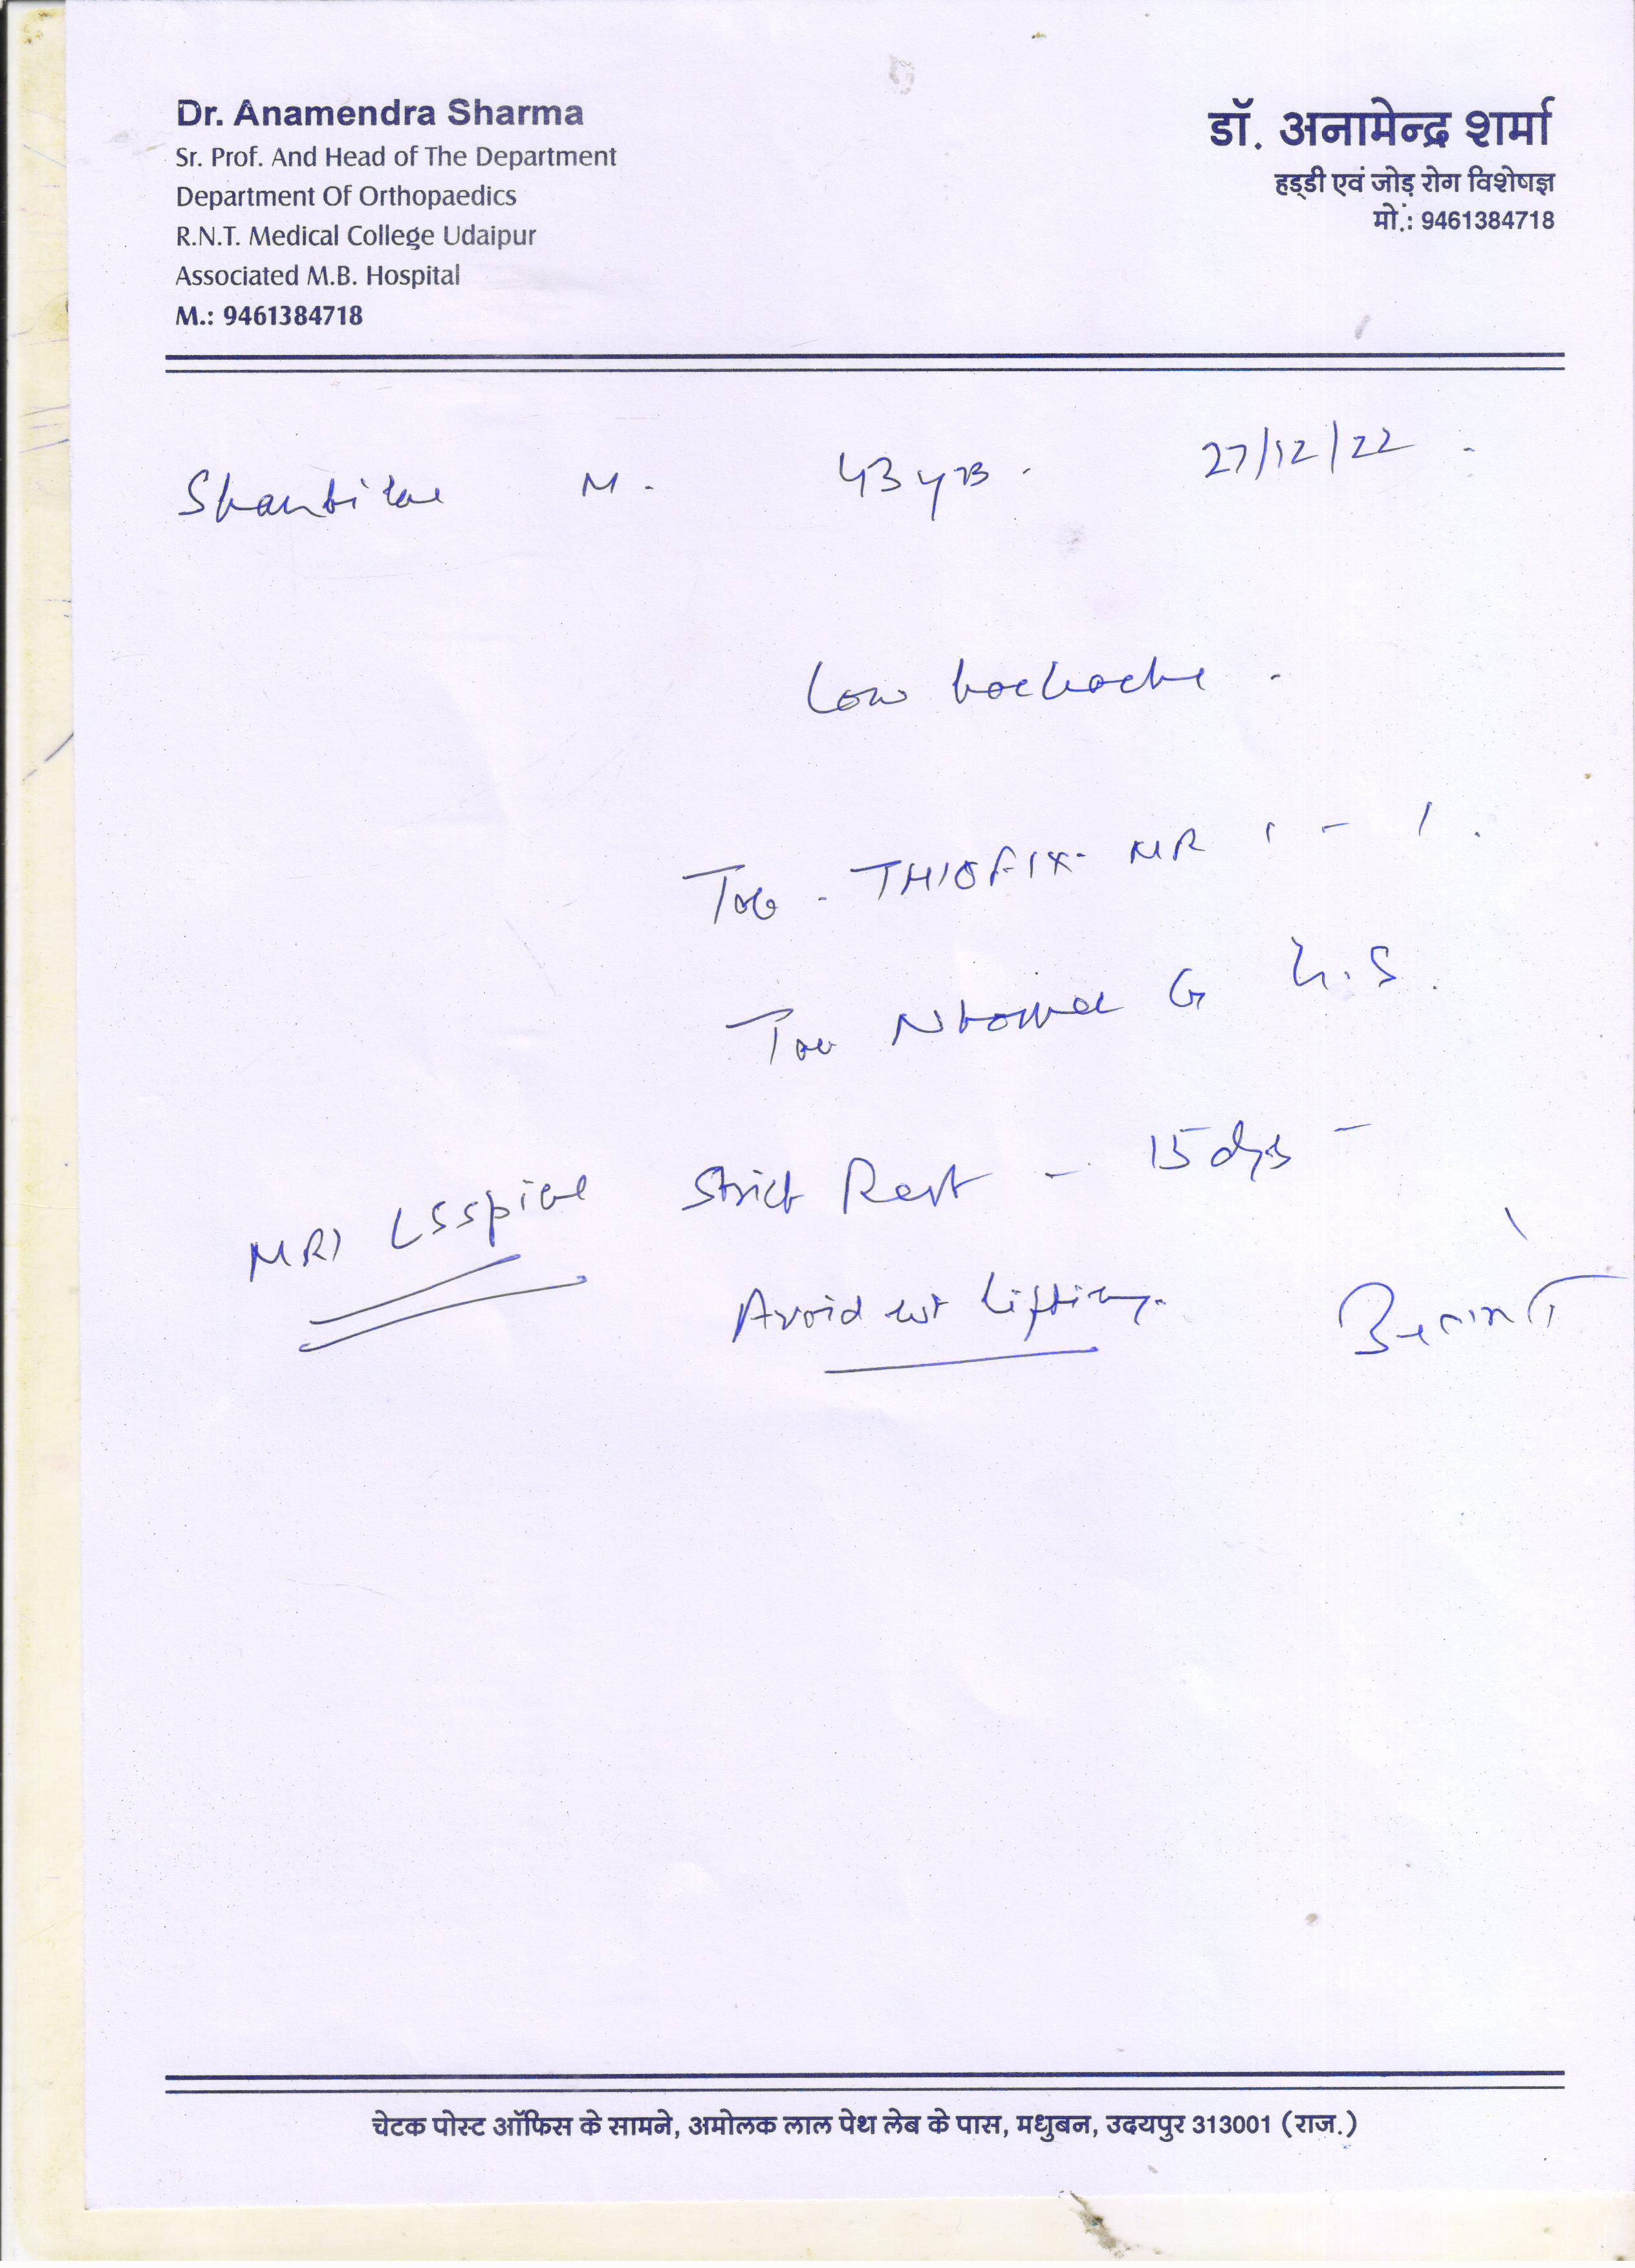 Dr. Anamendra Sharma
Sr. Prof. And Head of The Department
Department Of Orthopaedics
R.N.T. Medical College Udaipur
Associated M.B. Hospital
M.: 9461384718
डॉ. अनामेन्द्र शर्मा
हड्डी एवं जोड़ रोग विशेषज्ञ
मो.: 9461384718
M. 43 yrs. 27/12/22
Low backache.
Tab. THIOFIX MR 1 - 1.
Tab G h.s.
Strict Rest - 15 days -
MRI LS spine
Avoid wt lifting.
चेटक पोस्ट ऑफिस के सामने, अमोलक लाल पेथ लेब के पास, मधुबन, उदयपुर 313001 (राज.)